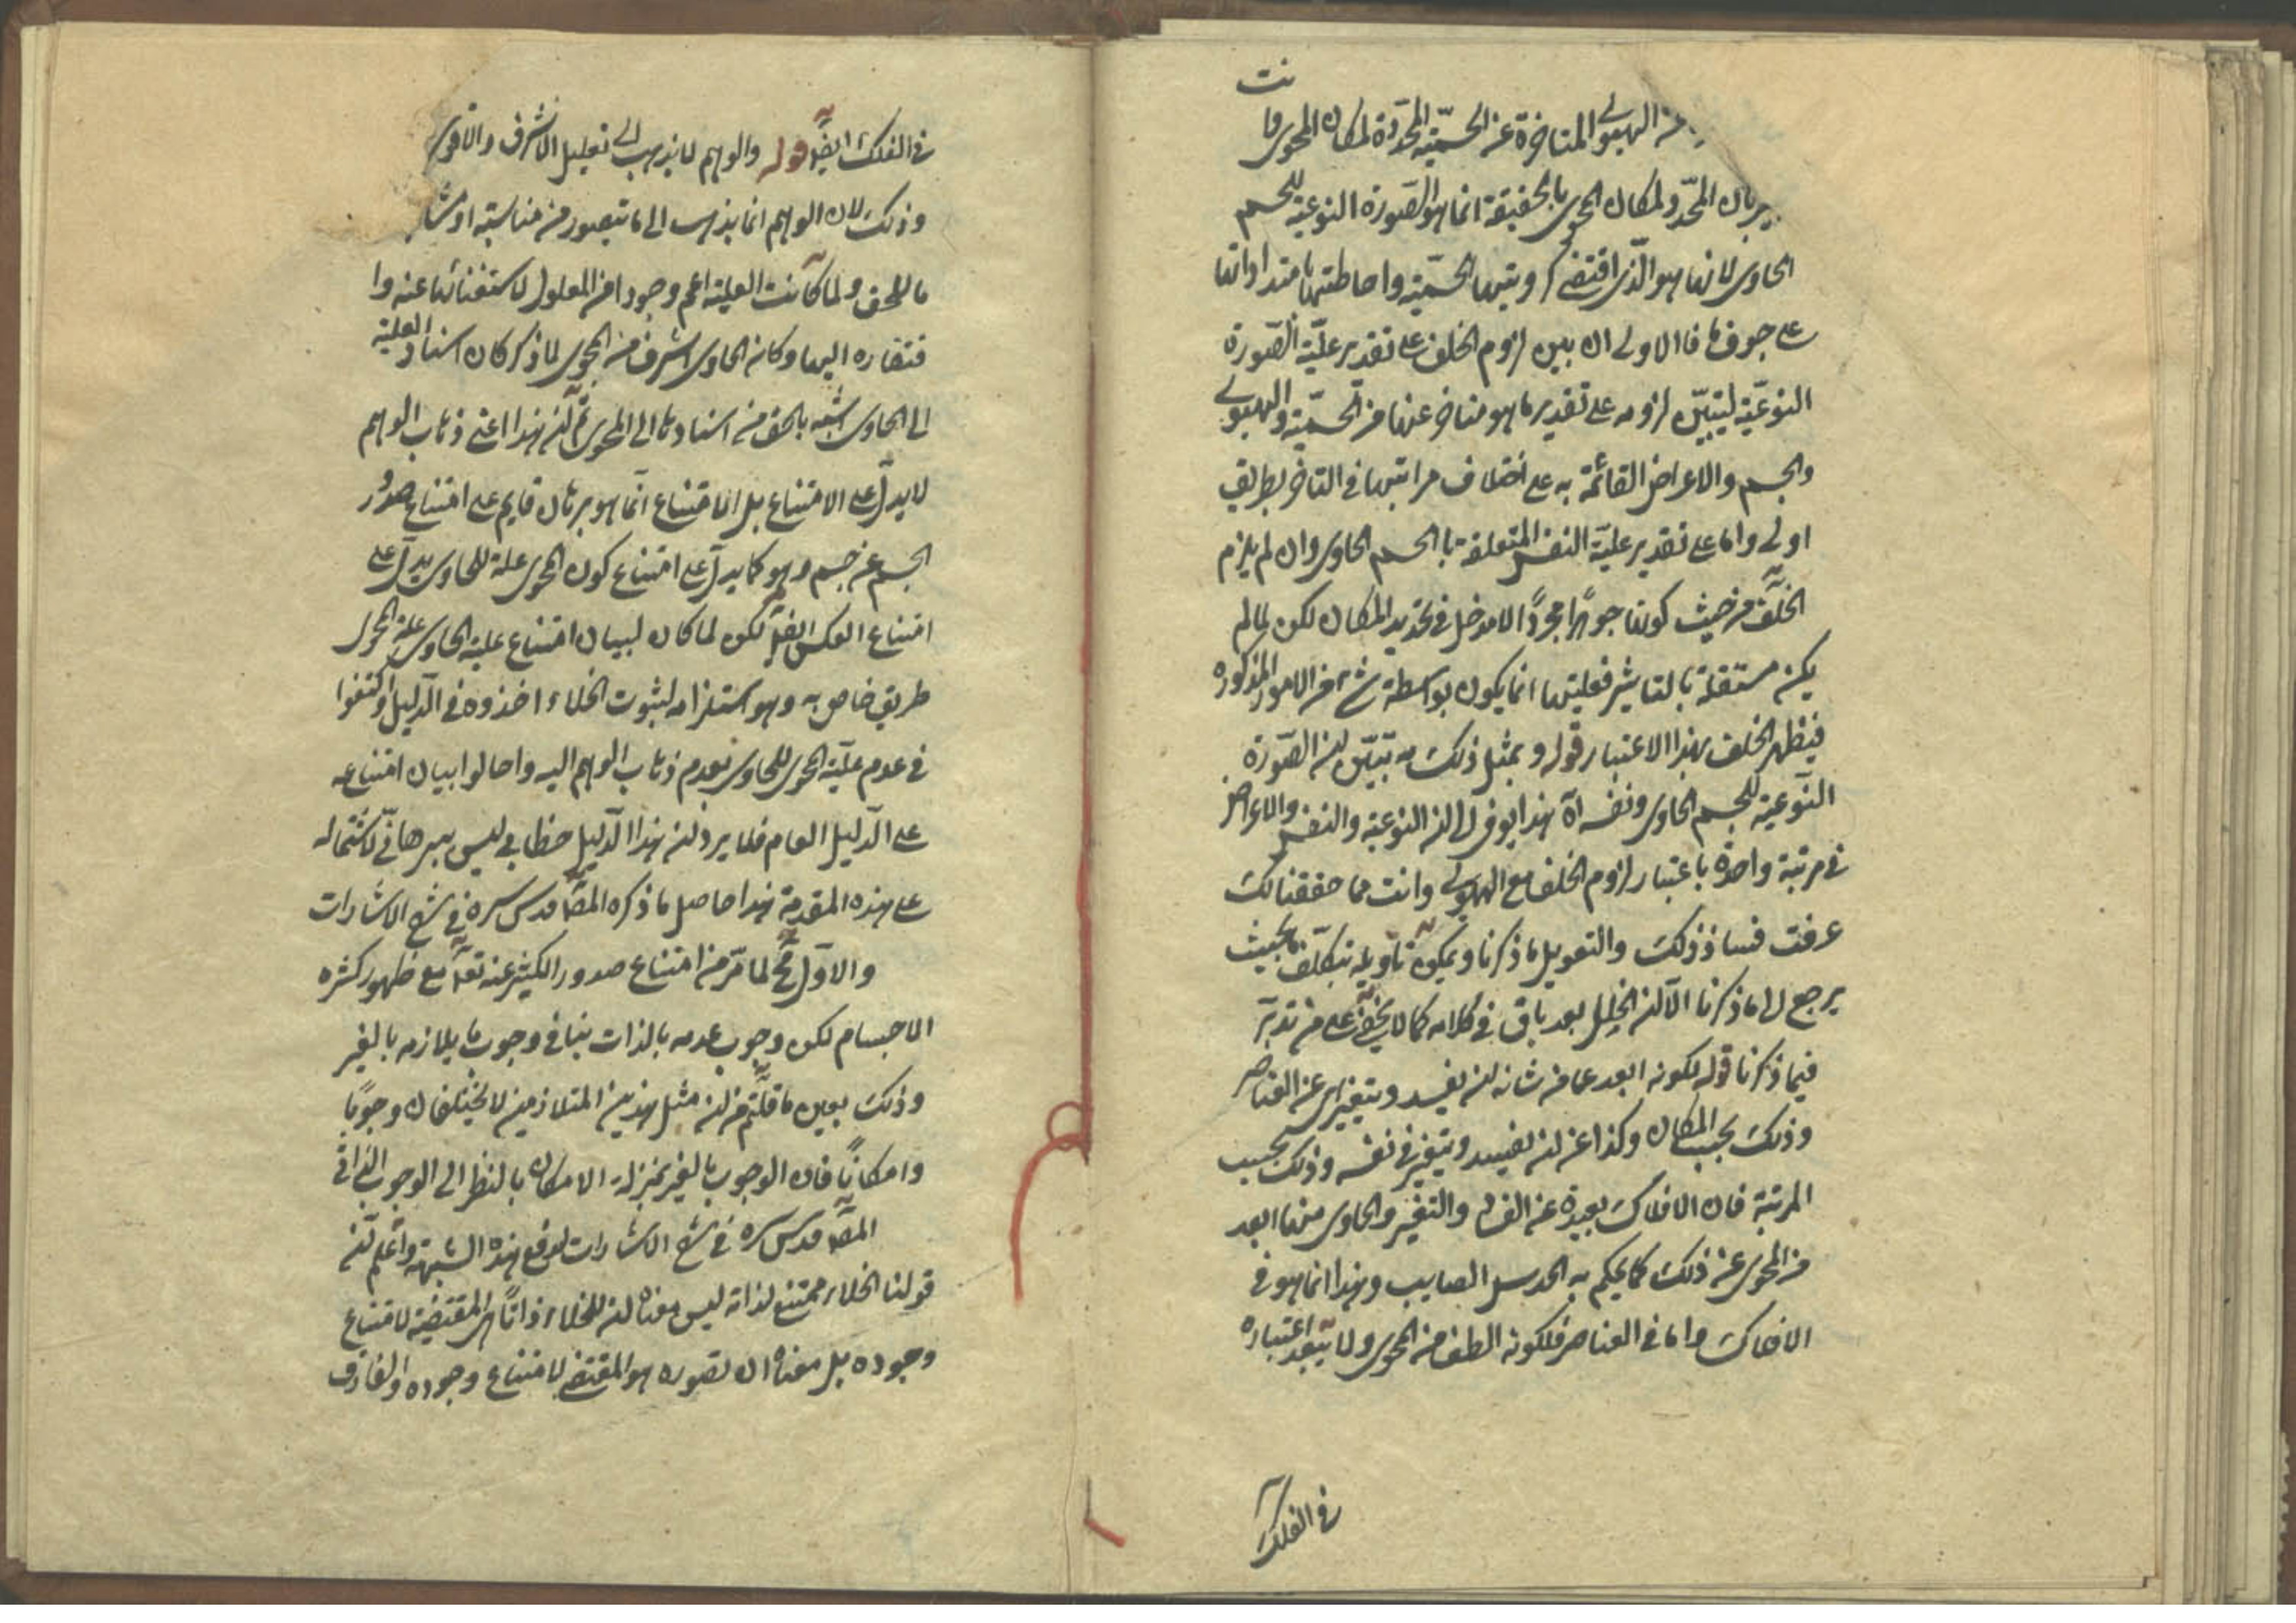 الهيولى المتاخرة عن الجسميّة المحدّدة لمكان المحوى وا
نت
المحدّد لمكان المحوى بالحقيقة انما هو الصّورة النوعية للجسم
الحاوى لانها هو الّذى اقتضى الجسميّة واحاطتها بامتداداتها
على جوفها فالاولى ان يبين لزوم الخلف على تقدير عليّة الصّورة
النوعيّة ليتبيّن لزومه على تقدير ما هو متاخر عنها من الجسميّة والهيولى
والجسم والاعراض القائمة به على اختلاف مراتبها فى التاخر بطريق
اولى واما على تقدير عليّة النفس المتعلقة بالجسم الحاوى وان لم يلزم
الخلف من حيث كونها جوهرا مجردًا لا مدخل فى تحديد المكان لكن لما لم
يكن مستقلة بالتاثير فعليتها انما يكون بواسطة شئ من الامور المذكوره
فيظهر الخلف بهذا الاعتبار قوله وبمثل ذلك يتبيّن ان الصّورة
النّوعية للجسم الحاوى ونفسه اه هذا يوهم ان النوعية والنفس والاعراض
فى مرتبة واحدة باعتبار لزوم الخلف مع الهيولى وانت مما حققنا لك
عرفت فساد ذلك والتعويل ما ذكرنا ويمكن تاويله بتكلّف بحيث
يرجع الى ما ذكرنا الا ان الخلل بعد باق فى كلامه كما لا يخفى على من تدبّر
فيما ذكرنا قوله لكونه ابعد عما من شانه ان يفسد ويتغير اى عن العناصر
وذلك بحسب المكان وكذا عن ان يفسد ويتغير فى نفسه وذلك بحسب
المرتبة فان الافلاك بعيدة عن الفساد والتغير والحاوى منها ابعد
من المحوى عن ذلك كما يحكم به الحدس الصايب وهذا انما هو فى
الافلاك واما فى العناصر فلكونه الطف من المحوى ولا يبعد اعتباره
فى الفلك
فى الفلك ايضًا قوله والوهم لا يذهب الى تعليل الاشرف والاقوى
وذلك لان الوهم انما يذهب الى ما يتصور من مناسبته او مشا
ما للحق ولما كانت العلية اعم وجودا من المعلول لاستغنائها عنه وا
فتقاره اليها وكان الحاوى اشرف من المحوى لما ذكر كان اسناد العلية
الى الحاوى اشبه بالحق من اسنادها الى المحوى ثم ان هذا اعنى ذهاب الوهم
لا يدلّ على الامتناع بل الامتناع انّما هو برهان قايم على امتناع صدور
الجسم عن جسم وهو كما يدلّ على امتناع كون المحوى علة للحاوى يدلّ على
امتناع العكس ايضا لكن لما كان لبيان امتناع علية الحاوى علة المحوى
طريق خاص به وهو استلزامه لثبوت الخلاء اخذوه فى الدليل واكتفوا
فى عدم عليّة المحوى للحاوى بعدم ذهاب الوهم اليه واحالوا بيان امتناعه
على الدّليل العام فلا يرد ان هذا الدّليل خطابى ليس ببرهانىّ لاشتماله
على هذه المقدمة هذا حاصل ما ذكره المصـ قدس سره فى شرح الاشارات
والاوّل مح لما مرّ من امتناع صدور الكثير عنه تعـ مع ظهور كثره
الاجسام لكن وجوب عدمه بالذات ينافى وجوب ما يلازمه بالغير
وذلك بعين ما قلتم من ان مثل هذين المتلازمين لا يختلفان وجوبًا
وامكانًا فان الوجوب بالغير بمنزلة الامكان بالنظر الى الوجوب الذاتى
المصـ قدس سره فى شرح الاشارات لدفع هذه الشبهة واعلم ان
قولنا الخلاء ممتنع لذاته ليس معناه ان للخلاء ذاتًا هى المقتضية لامتناع
وجوده بل معناه ان تصوره هو المقتضى لامتناع وجوده